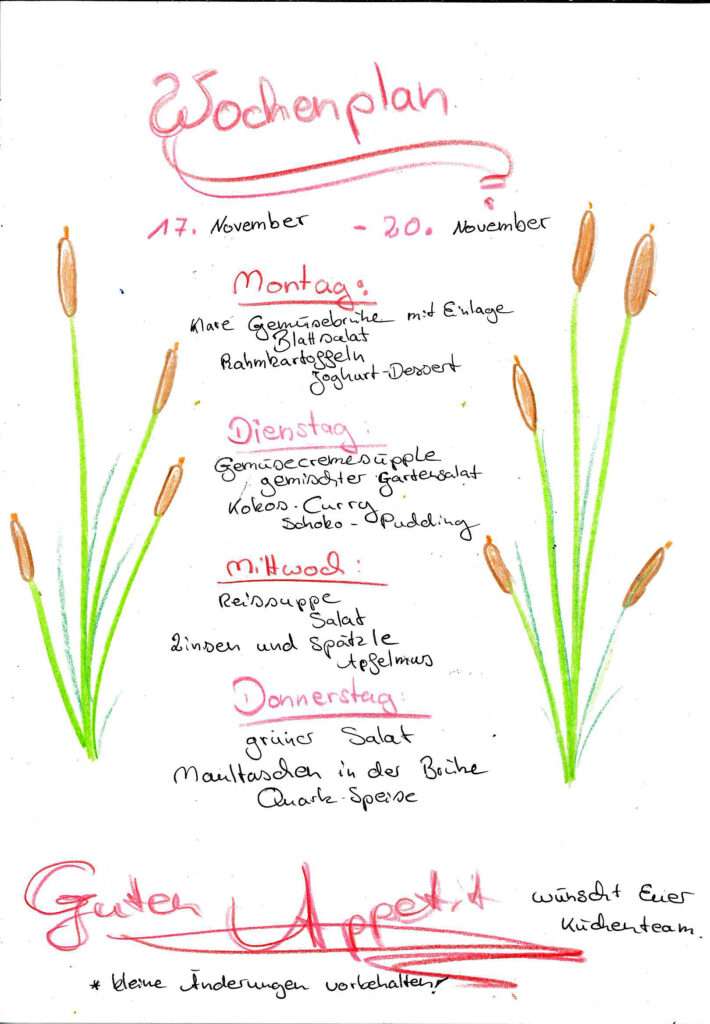 Wochenplan
17. November - 20. November
Montag:
Klare Gemüsebrühe mit Einlage
Blattsalat
Rahmkartoffeln
Joghurt-Dessert
Dienstag:
Gemüsecremesupple
gemischter Gartensalat
Kokos-Curry
Schoko-Pudding
Mittwoch:
Reissuppe
Salat
Linsen und Spätzle
Apfelmus
Donnerstag:
grüner Salat
Maultaschen in der Brühe
Quark-Speise
Guten Appetit wünscht Euer
Küchenteam.
* kleine Änderungen vorbehalten!